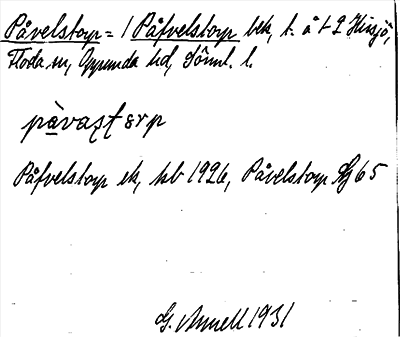 Påvelstorp = 1 Påfvelstorp bek, t. å t 2 Husjö,
Floda sn, Oppunda hd, Söml. l.
påvastårp
Påfvelstorp ek, kb 1926, Påvelstorp Hg 65
G. Annell 1931